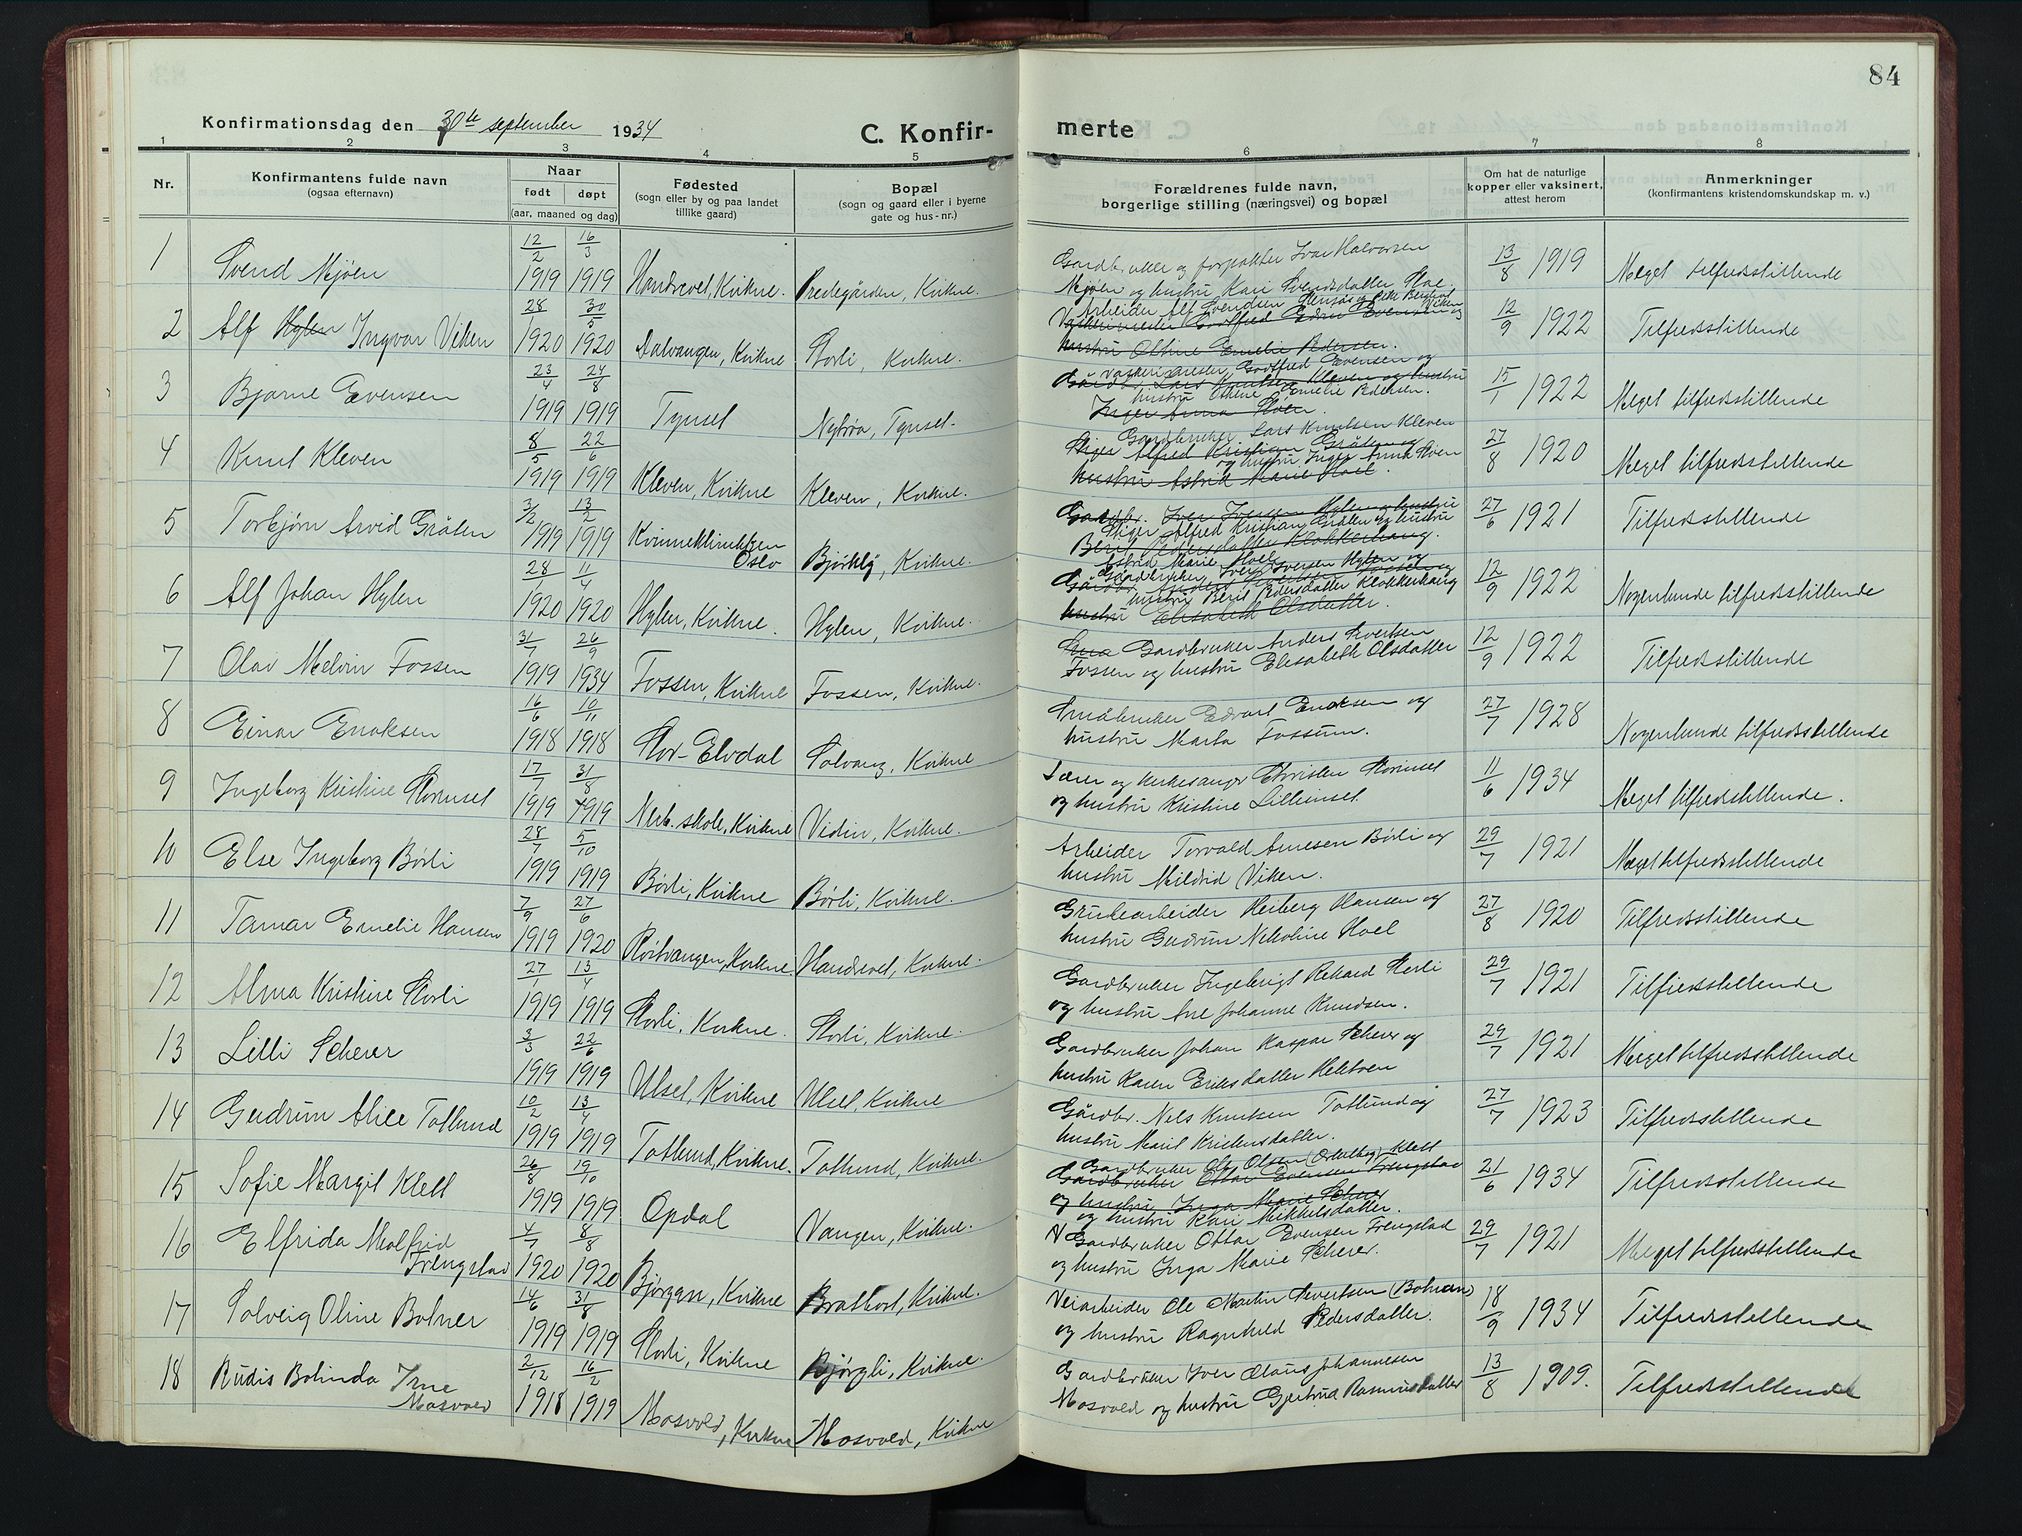 84
Konfirmationsdag den 30te september 1934
C. Konfir-
merte
1 2 3 4 5 6 7 8
Nr.
Konfirmantens fulde navn
(ogsaa efternavn)
Naar
født døpt
(aar, maaned og dag)
Fødested
(sogn eller by og paa landet
tillike gaard)
Bopæl
(sogn og gaard eller i byerne
gate og hus-nr.)
Forældrenes fulde navn,
borgerlige stilling (næringsvei) og bopæl
Om hat de naturlige
kopper eller vaksinert,
attest herom
Anmerkninger
(konfirmantens kristendomskundskap m. v.)
1 Svend Mjøen 12/2 1919 16/3 1919 Vandrevet, Kvikne. Prestegården, Kvikne.
Gardbruker og forpakter Ivar Halvorsen
Mjøen og hustru Kari Svendsdatter Hoe.
13/8 1919 Meget tilfredsstillende
2 Alf Hylen Ingvar Viken 28/1 1920 30/5 1920 Dalvangen, Kvikne Storli, Kvikne.
Arbeider Alf Svendsen
Vaskerimester Godtfred Edvin Evensen og
hustru Othine Emelie Pedersen.
12/9 1922 Tilfredsstillende
3 Bjarne Evensen 23/4 1919 24/8 1919 Tynset Nytrøa, Tynset.
Vaskerimester Godtfred Evensen og
Gårdbr. Lars Knutsen Kleven og hustru
hustru Othine Emelie Pedersen.
Inger Anna Hoen.
15/1 1922 Meget tilfredsstillende
4 Knut Kleven 8/5 1919 22/6 1919 Kleven, Kvikne Kleven, Kvikne.
Gardbruker Lars Knutsen Kleven
Stiger Alfred Kristian Gråten og
og hustru Inger Anna Hoen
hustru Astrid Marie Hoel.
27/8 1920 Meget tilfredsstillende
5 Torbjørn Arvid Gråten 3/2 1919 13/2 1919 Kvinneklinikken Oslo Bjørkly, Kvikne.
Gardbr. Iver Iversen Hylen og hustru
Stiger Alfred Kristian Gråten og hustru
Berit Pedersdatter Klokkerhaug.
Astrid Marie Hoel
27/6 1921 Tilfredsstillende
6 Alf Johan Hylen 28/1 1920 11/4 1920 Hylen, Kvikne. Hylen, Kvikne.
Gardbruker Iver Iversen Hylen og
hustru Berit Pedersdatter Klokkerhaug
hustru Elisabeth Olsdatter.
12/9 1922 Nogenlunde tilfredsstillende
7 Olav Melvin Fossen 31/7 1919 26/9 1934 Fossen, Kvikne Fossen, Kvikne.
Gardbruker Anders Sivertsen
Fossen og hustru Elisabeth Olsdatter
12/9 1922 Tilfredsstillende
8 Einar Enoksen 16/6 1918 10/11 1918 Stor-Elvdal Solvang, Kvikne
Småbruker Edvart Enoksen og
hustru Marta Fossum.
27/7 1928 Nogenlunde tilfredsstillende
9 Ingeborg Kristine Storinset 17/7 1919 31/8 1919 Nerb. skole, Kvikne Vidin, Kvikne.
Lærer og kirkesanger Christen Storinset
og hustru Kristine Lilleinset.
11/6 1934 Meget tilfredsstillende.
10 Else Ingeborg Børli 28/7 1919 5/10 1919 Børli, Kvikne Børli, Kvikne.
Arbeider Torvald Arnesen Børli og
hustru Mildrid Viken.
29/7 1921 Meget tilfredsstillende
11 Tamar Emelie Hansen 7/9 1919 27/6 1920 Røstvangen, Kvikne. Vandrevet, Kvikne.
Grubearbeider Heiberg Hansen og
hustru Gudrun Nikoline Hoel
27/8 1920 Tilfredsstillende
12 Alma Kristine Storli 27/1 1919 13/4 1919 Storli, Kvikne. Storli, Kvikne.
Gardbruker Ingebrigt Rikard Storli
og hustru Ane Johanne Knudsen.
29/7 1921 Tilfredsstillende
13 Lilli Scherer 3/3 1919 22/6 1919 Ulset, Kvikne Ulset, Kvikne
Gardbruker Johan Kaspar Scherer og
hustru Karen Eriksdatter Heletven
29/7 1921 Meget tilfredsstillende
14 Gudrun Alice Tollund 10/2 1919 13/4 1919 Tollund, Kvikne. Tollund, Kvikne.
Gårdbr. Nils Knutsen Tollund og
hustru Marit Kristensdatter.
27/7 1923 Tilfredsstillende
15 Sofie Margit Klett 26/8 1919 19/10 1919. Opdal Vangen, Kvikne.
Gardbruker Ole Olsen Klett
Gardbruker Ottar Evensen Frengstad
og hustru Inga Marie Scherer
og hustru Kari Mikkelsdatter.
21/6 1934 Tilfredsstillende
16 Elfrida Malfrid Frengstad 4/7 1920 8/8 1920 Bjørgan, Kvikne Brattbost, Kvikne.
Gardbruker Ottar Evensen Frengstad
og hustru Inga Marie Scherer.
29/7 1921 Meget tilfredsstillende
17 Solveig Oline Bolner 14/6 1919 31/8 1919 Storli, Kvikne Bjørgli, Kvikne.
Veiarbeider Ole Martin Sivertsen
og hustru Ragnhild Pedersdatter.
18/9 1934 Tilfredsstillende
18 Rudis Bolinda Irne Mosvold 2/12 1918 16/2 1919 Mosvold, Kvikne Mosvold, Kvikne
Gardbruker Iver Claus Johannesen
Mosvold og hustru Gjertrud Rasmusdatter
13/8 1909. Tilfredsstillende